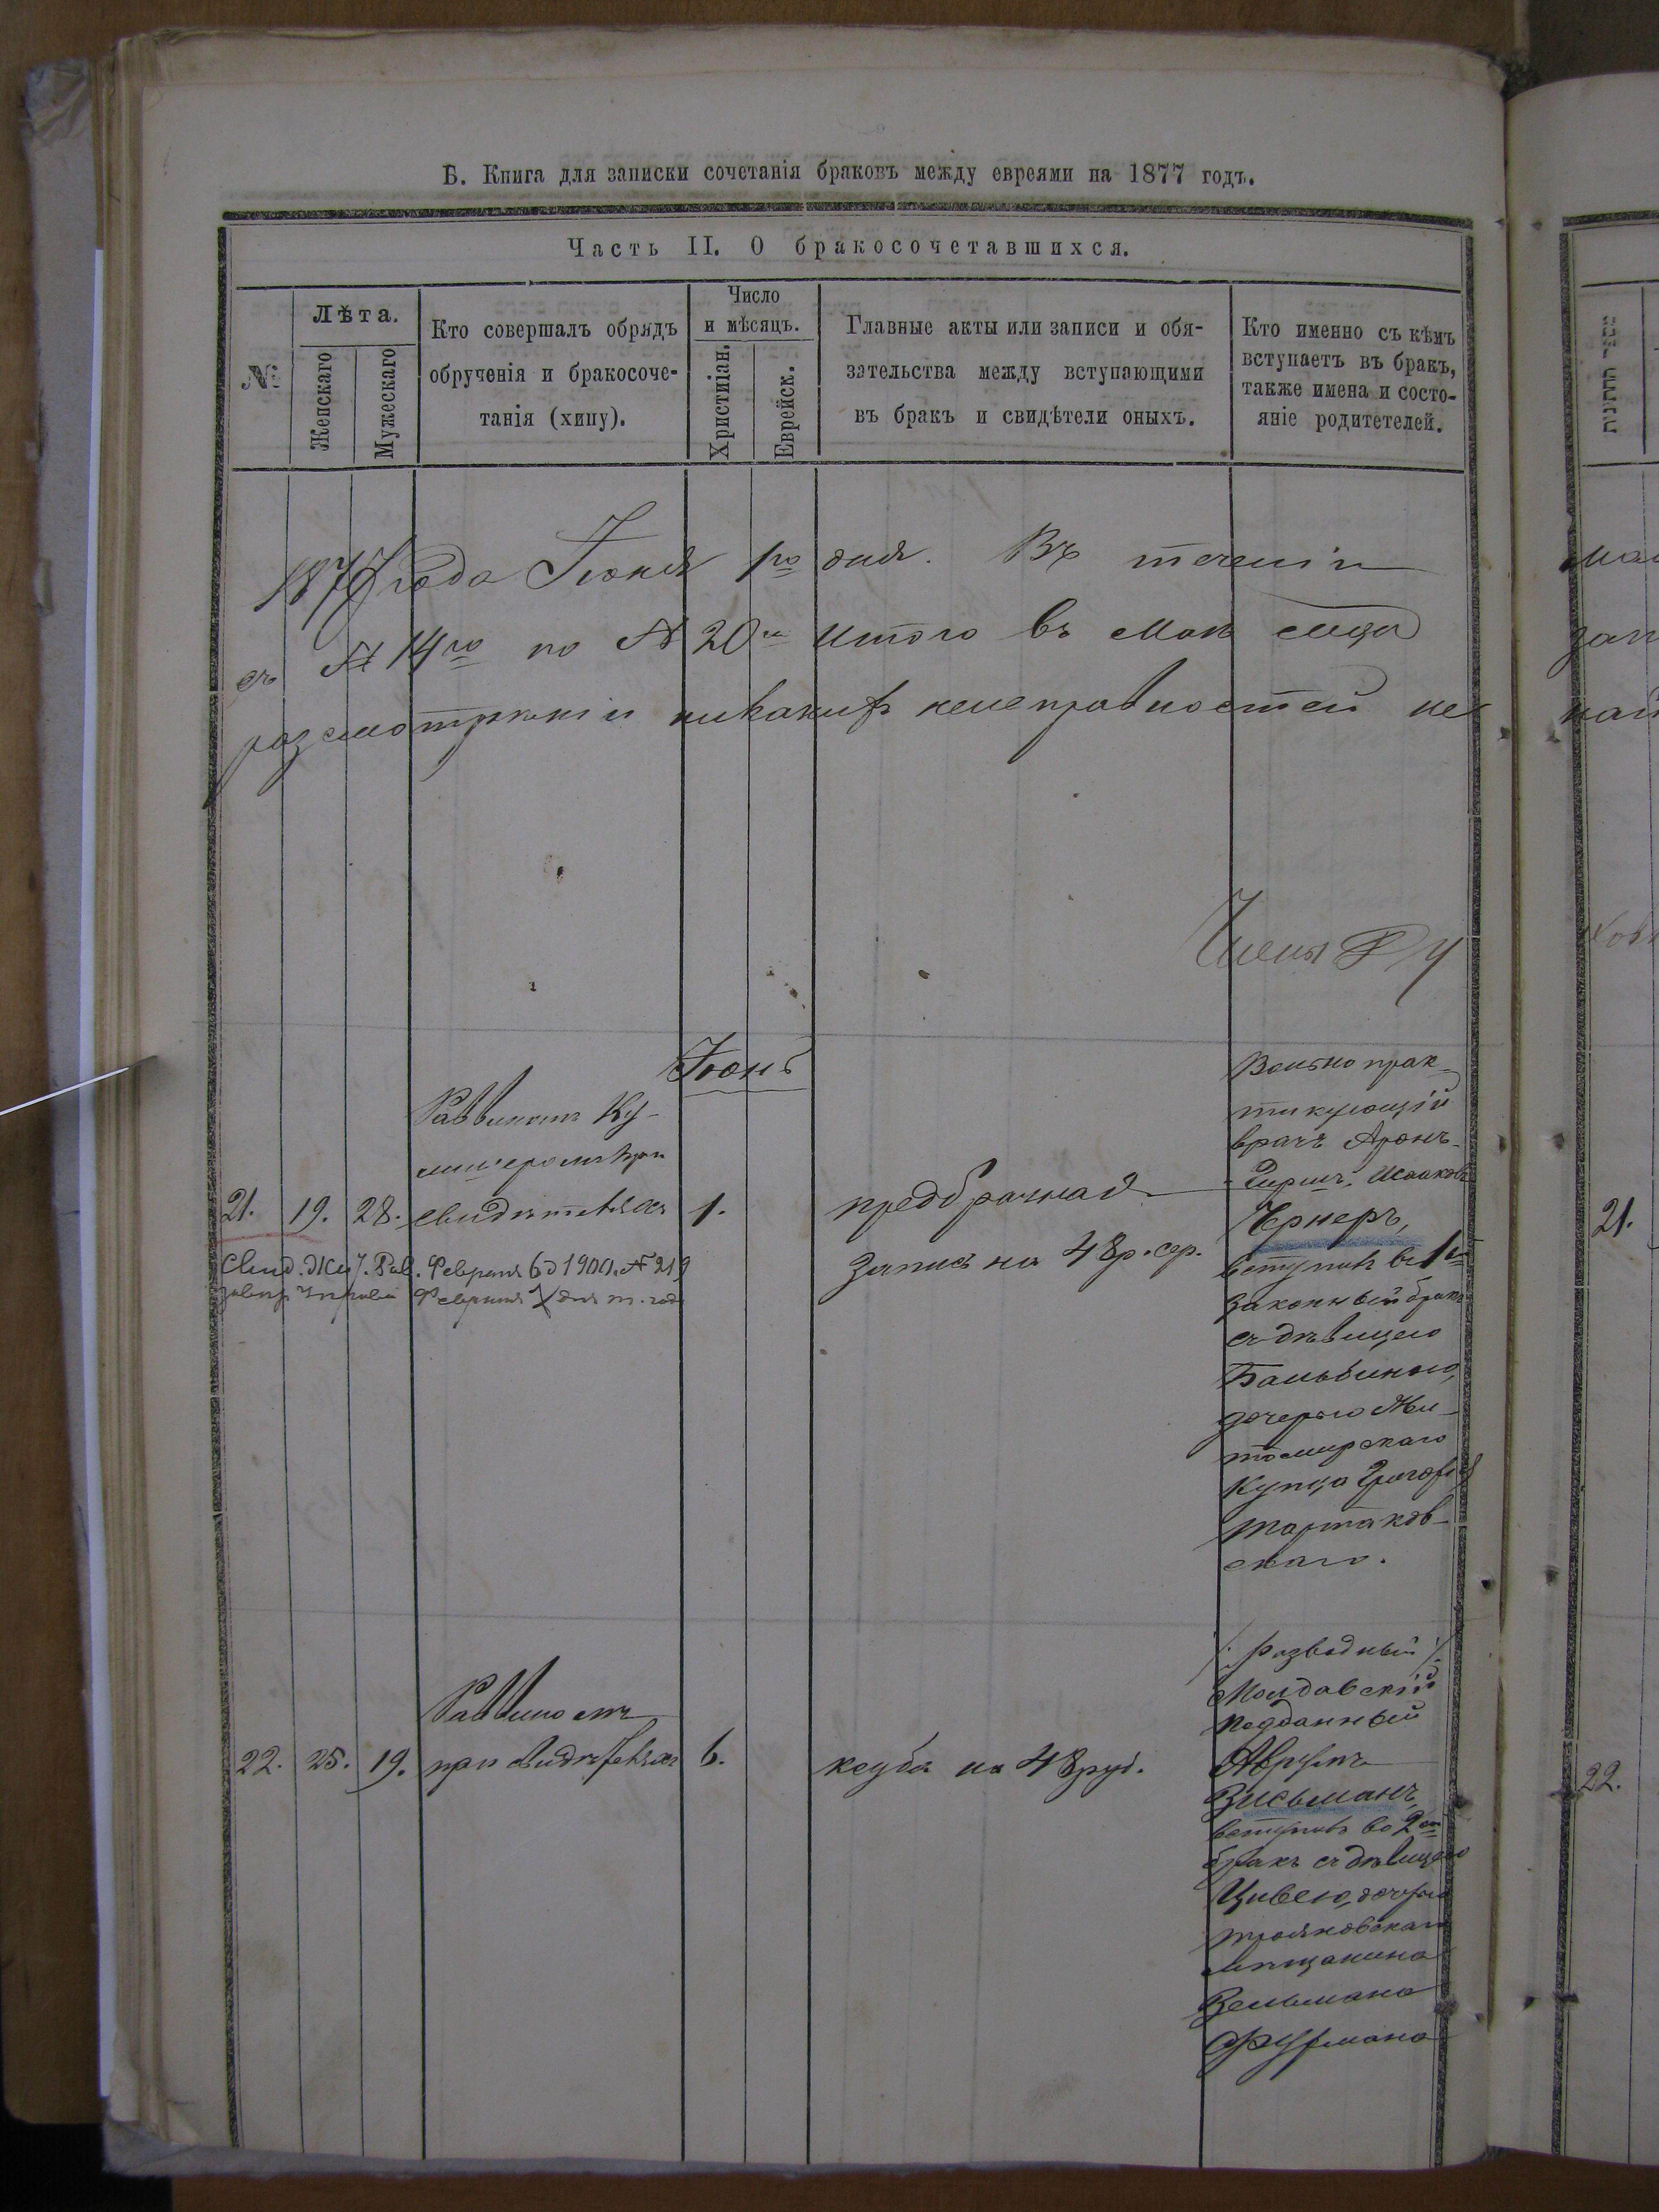 Б. Книга для записки сочетанія браковъ между евреями на 1877 годъ.
Часть II. О бракосочетавшихся.
№
Лѣта.
Женскаго
Мужескаго
Кто совершалъ обрядъ
обрученія и бракосоче-
танія (хипу).
Число
и мѣсяцъ.
Христіан.
Еврейск.
Главные акты или записи и обя-
зательства между вступающими
въ бракъ и свидѣтели оныхъ.
Кто именно съ кѣмъ
вступаетъ въ бракъ,
также имена и состо-
яніе родитетелей.
1877 года Іюня 1го дня. Въ теченіи
съ № 14го по № 20й итого въ
разсмотрѣніи никакихъ неисправностей не
Члены
Іюнь
21. 19. 28.
Раввиномъ Ку-
при
свидѣтеляхъ
1.
предбрачная
запись на 48 р. сер.
Вольно прак-
тикующій
врачъ Аронъ-
Гершъ Исааковъ
Чернеръ,
вступилъ въ 1й
законный бракъ
съ дѣвицею
дочерью Жи-
томирскаго
купца Григорія
Тартаков-
скаго.
Свид. Жит. Рав. Февраля 6 д 1900. № 219
Февраля 7 дня т. года
22. 25. 19.
Раввиномъ
при свидѣтеляхъ
6.
ксуба на 48 руб.
/: разводный :/
Молдавскій
подданный
Аврумъ
Зисьманъ,
вступилъ во 2й
бракъ съ дѣвицею
Цивею, дочерью
трояновскаго
мѣщанина
Зельмана
Фурмана
21.
22.